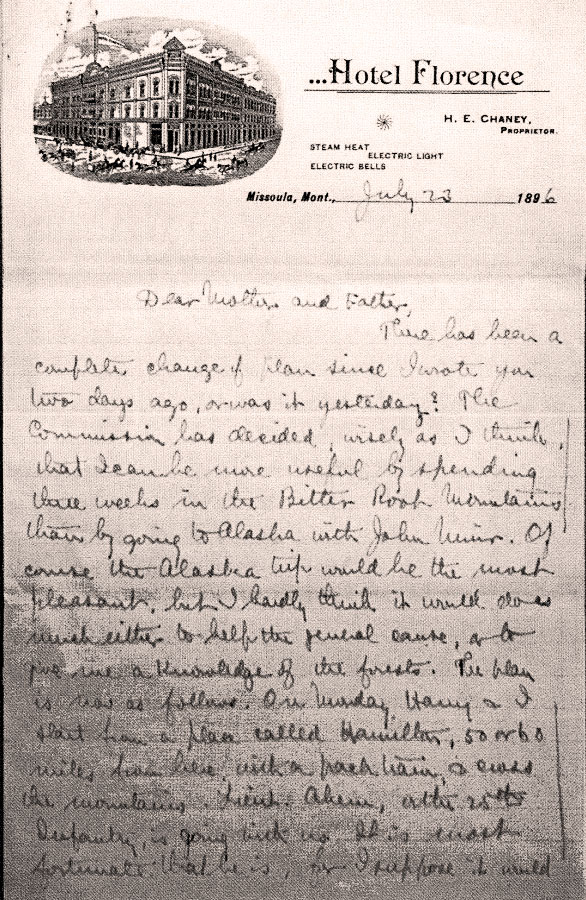 ...Hotel Florence
H. E. CHANEY,
PROPRIETOR.
STEAM HEAT
ELECTRIC LIGHT
ELECTRIC BELLS
Missoula, Mont., July 23 1896
Dear Mother and Father,
There has been a
complete change of plan since I wrote you
two days ago, or was it yesterday? The
Commission has decided, wisely as I think,
that I can be more useful by spending
three weeks in the Bitter Root Mountains
than by going to Alaska with John Muir. Of
course the Alaska trip would be the most
pleasant, but I hardly think it would do as
much either to help the general cause, or to
give me a knowledge of the forests. The plan
is now as follows. On Monday Harry & I
start from a place called Hamilton, 50 or 60
miles from here, with a pack train, & cross
the mountains. Lieut. Ahern, of the 25th
Infantry, is going with us. It is most
fortunate that he is, for I suppose it would